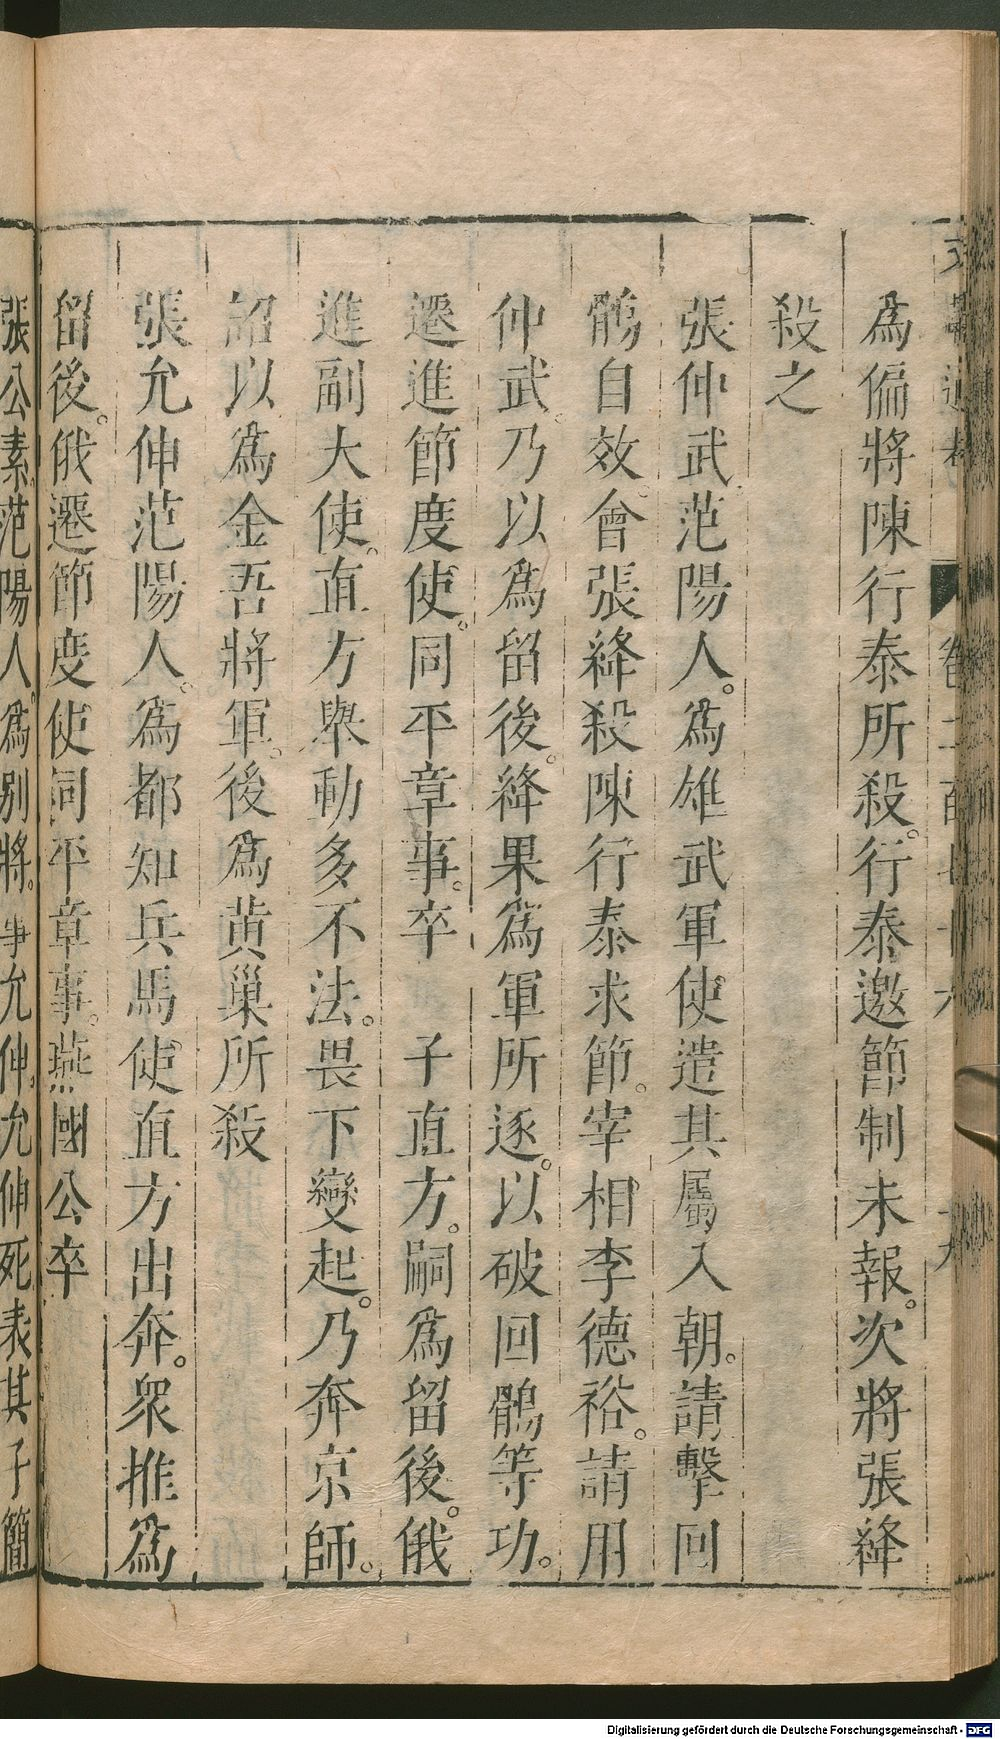 為偏將陳行泰所殺。行泰邀節制未報。次將張絳
殺之
張仲武范陽人。為雄武軍使遣其屬入朝。請擊回
鶻自效。會張絳殺陳行泰求節。宰相李德裕。請用
仲武。乃以為留後。絳果為軍所逐。以破回鶻等功。
遷進節度使。同平章事。卒 子直方。嗣為留後。俄
進副大使。直方舉動多不法。畏下變起。乃奔京師。
詔以為金吾將軍。後為黄巢所殺
張允伸范陽人。為都知兵馬使直方出奔。衆推為
留後。俄遷節度使同平章事。燕國公卒
張公素。范陽人。為別將。事允伸。允伸死表其子簡
Digitalisierung gefördert durch die Deutsche Forschungsgemeinschaft - DFG